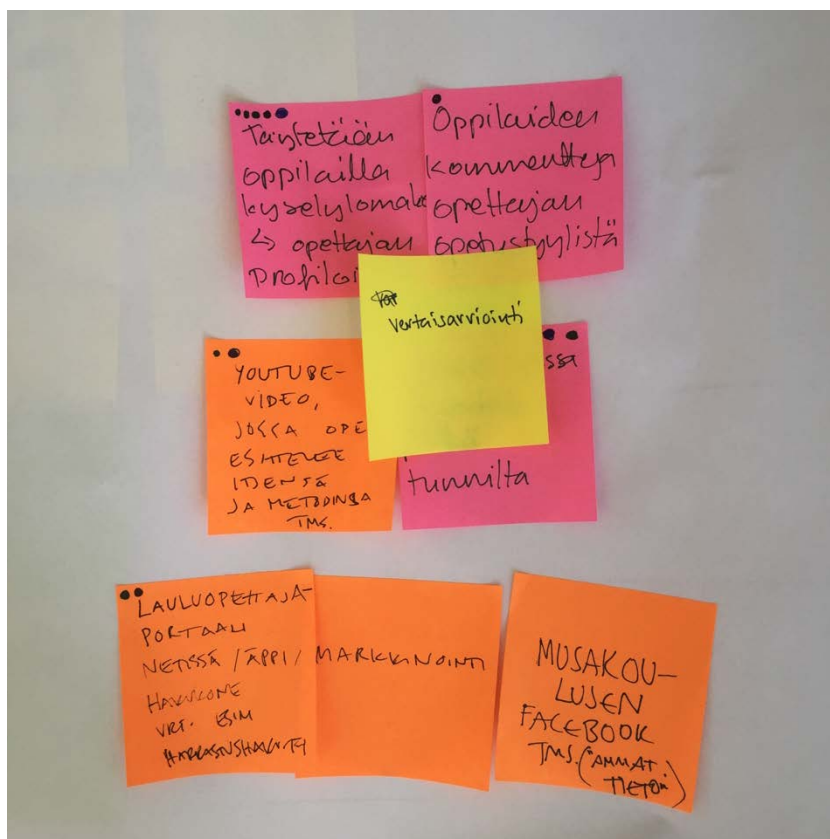 Täytetään
oppilailla
kyselylomake
↳ opettajan
profiloi
Oppilaiden
kommentteja
opettajan
opetustyylistä
vertaisarviointi
YOUTUBE-
VIDEO,
JOSSA OPE
ESITTELEE
ITSENSÄ
JA METODINSA
TMS.
ssa
tunnilta
LAULUOPETTAJA-
PORTAALI
NETISSÄ / ÄPPI /
HAKUKONE
VRT. ESIM
MARKKINOINTI
MUSAKOU-
LUSEN
FACEBOOK
TMS. ("AMMAT.
TIETO")